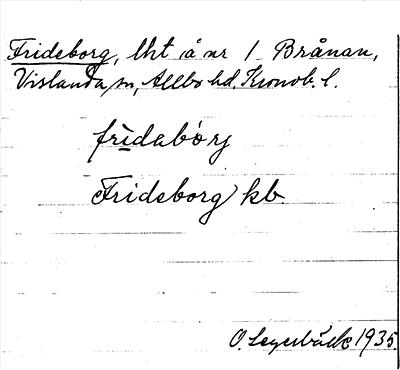 Frideborg, lht å nr 1 Brånan,
Vislanda sn, Allbo hd, Kronob. l.
frìdabòrj
Frideborg kb.
O. Legerbäck 1935.